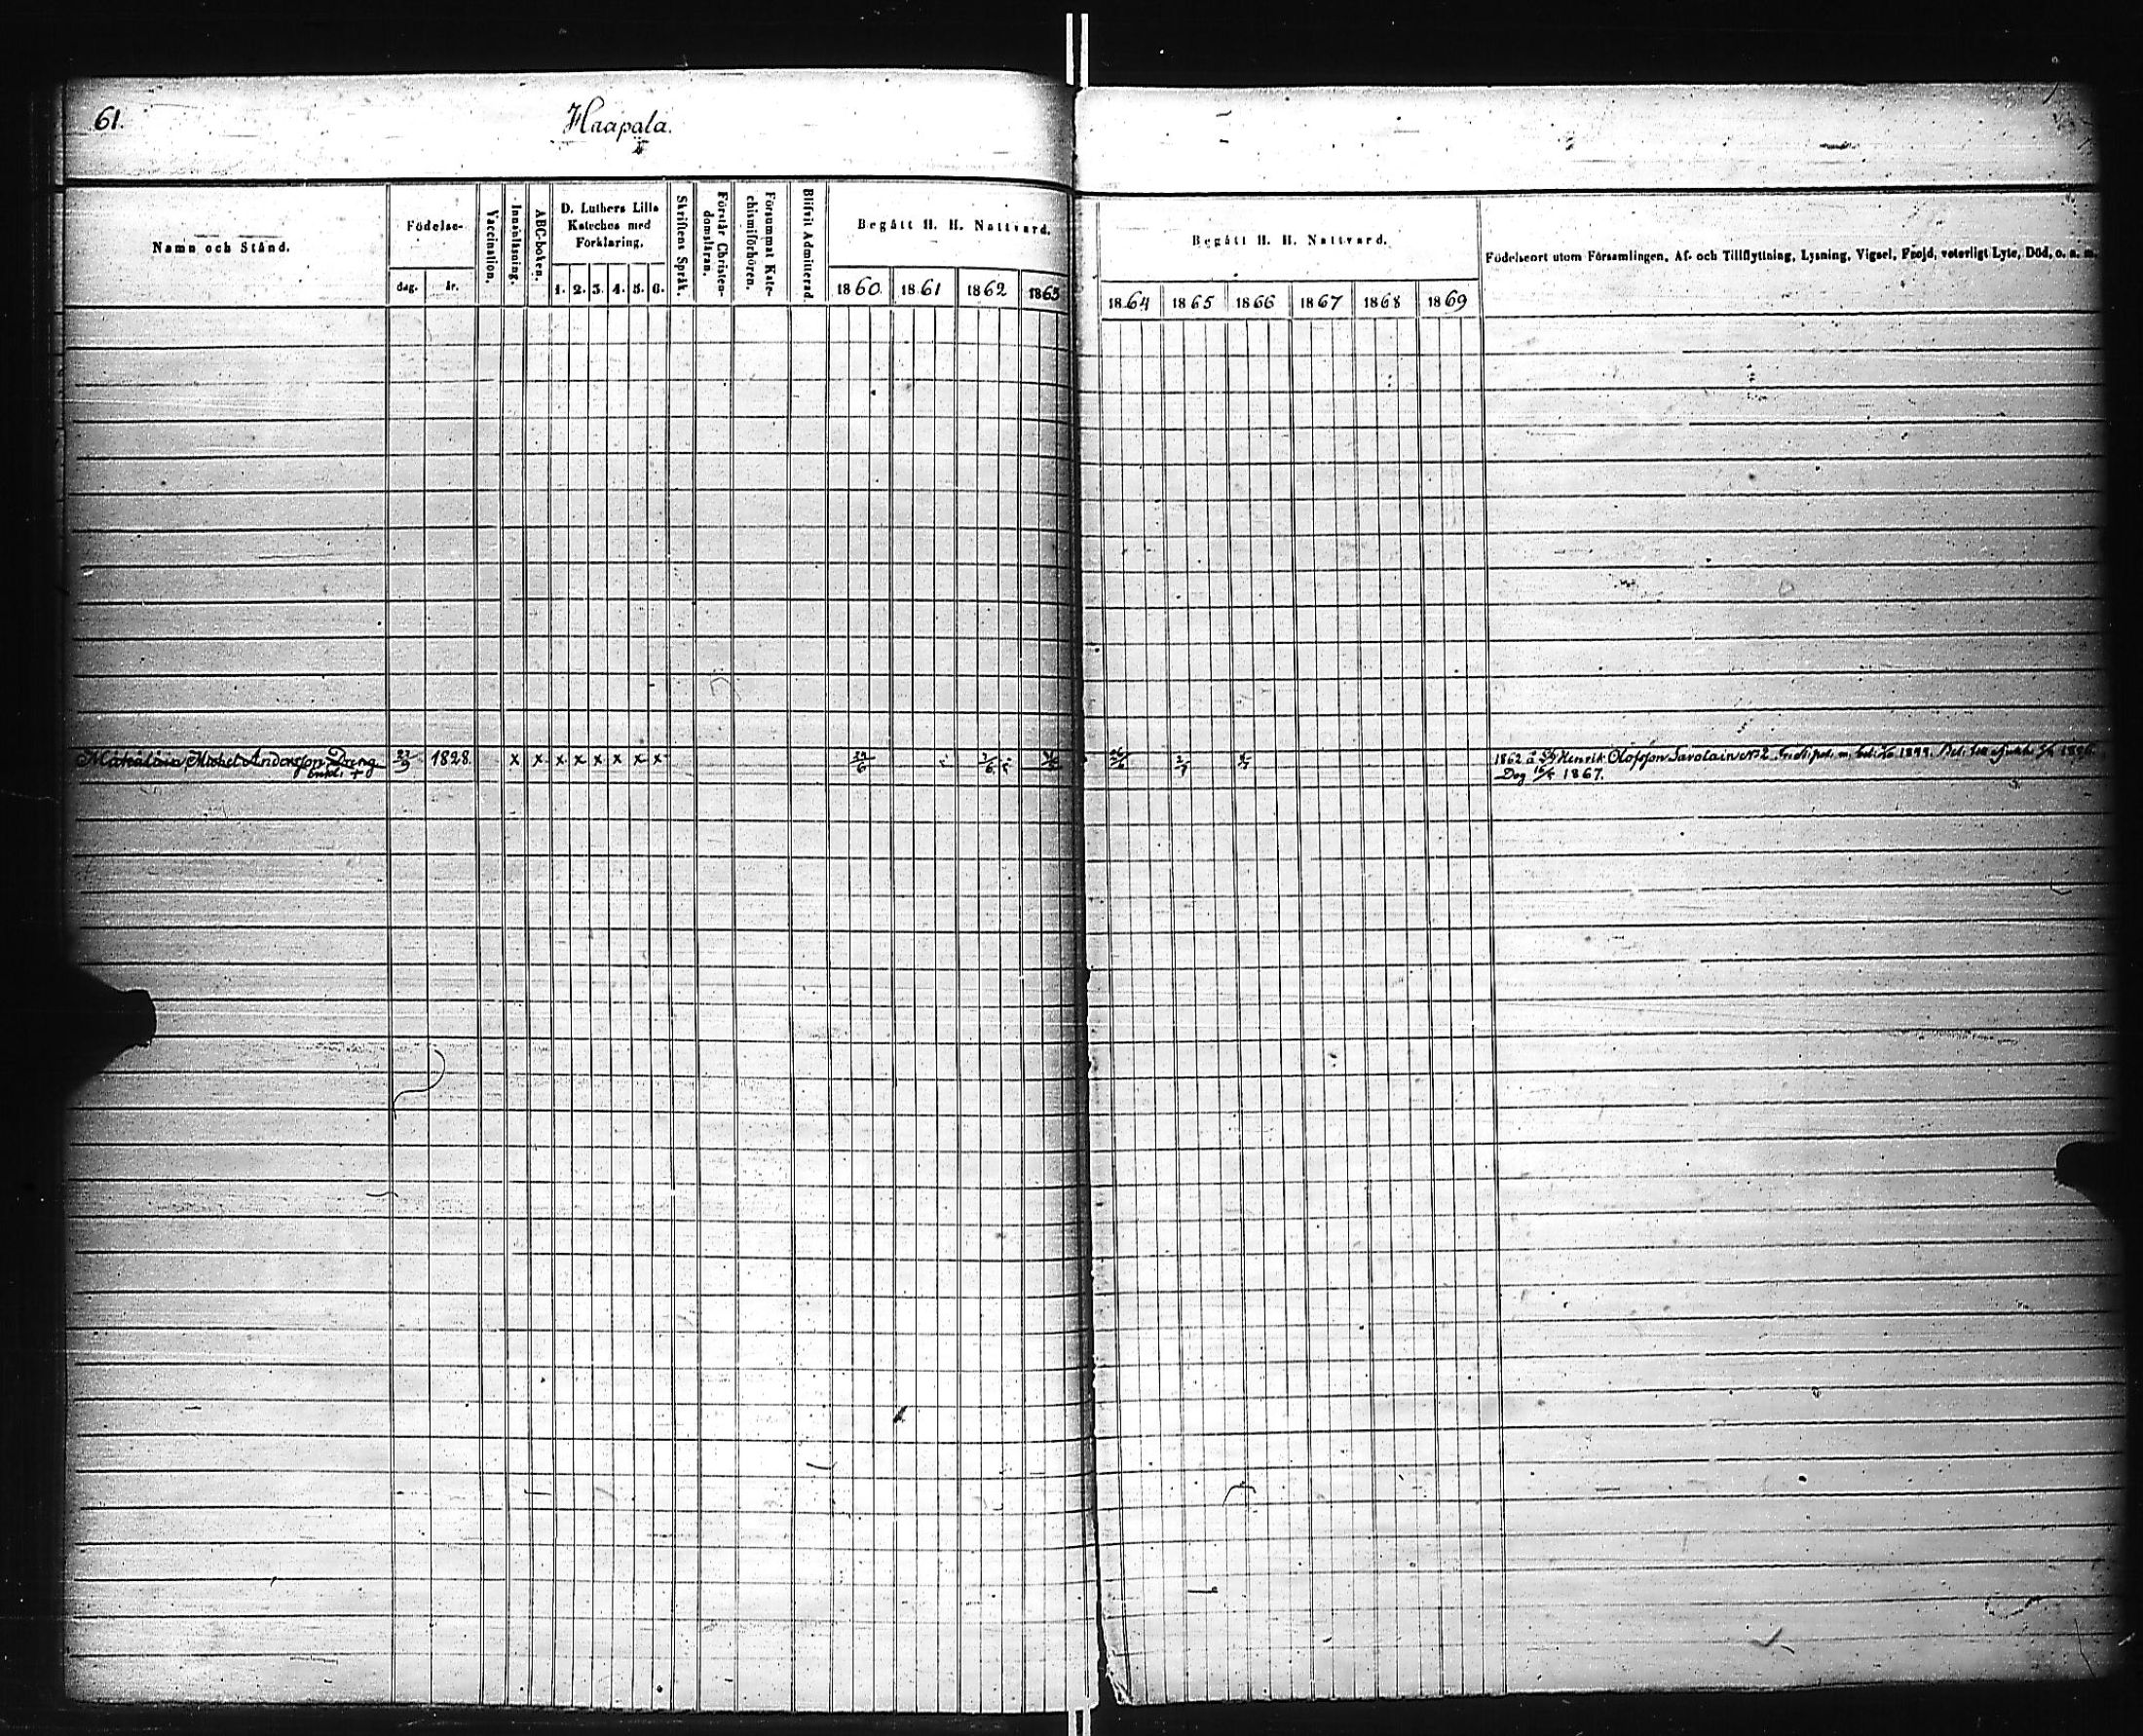 61.
Haapala.
Namn och Stånd.
Födelse-
dag. år.
Vaccination.
Innanläsning.
ABC-boken.
D. Luthers Lilla
Kateches med
Förklaring.
1. 2. 3. 4. 5. 6.
Skriftens Språk.
Förstår Christen-
domsläran.
Försummat Kate-
chismiförhören.
Blifvit Admitterad.
Begått H. H. Nattvard.
1860 1861 1862 1863
Begått H. H. Nattvard.
1864 1865 1866 1867 1868 1869
Födelseort utom Församlingen, Af- och Tillflyttning, Lysning, Vigsel, Frejd, veterligt Lyte, Död, o. s. m.
Michel Andersson Dreng 1828 x x x x x x x x
1862 å Henrik Olofsson Savolain N:o 2
Dog 1867.